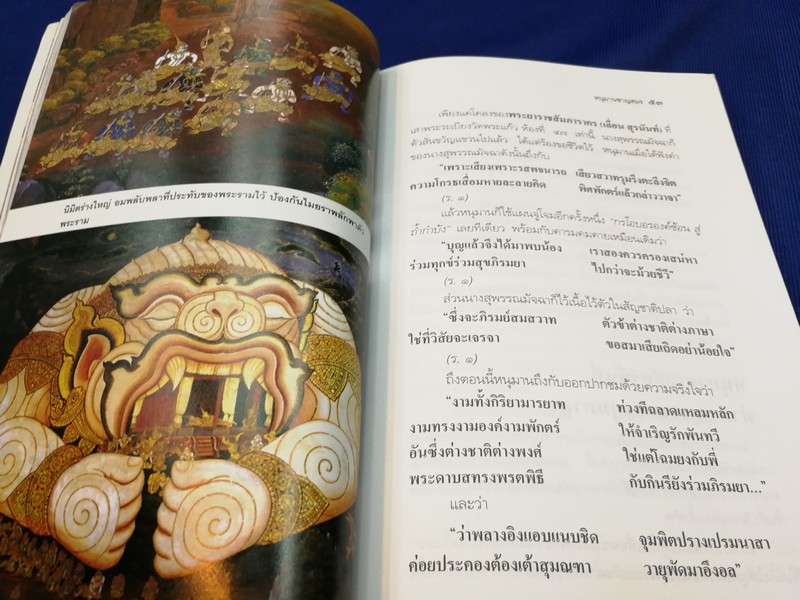 นิมิตร่างใหญ่ อมพลับพลาที่ประทับของพระรามไว้ ป้องกันไมยราพลักพาตัว
พระราม
หนุมานชาญสมร ๕๓
เพียงแต่โคลงของพระยาราชสัมภารากร (เลื่อน สุรนันท์) ที่
เสาพระระเบียงวัดพระแก้ว ห้องที่ ๔๗ เท่านี้ นางสุพรรณมัจฉาก็
ตัวสั่นขวัญแขวนไปแล้ว ได้แต่ร้องขอชีวิตไว้ หนุมานเมื่อได้ฟังคำ
ของนางสุพรรณมัจฉาดังนั้นถึงกับ
“เพราะเสียงเพราะรสพจนารถ เสียวสวาทรุมรึงตะลึงจิต
ความโกรธเสื่อมหายละลายคิด พิศพักตร์แล้วกล่าววาจา”
(ร. ๑)
แล้วหนุมานก็ใช้แผนจู่โจมอีกครั้งหนึ่ง “กรโอบอรองค์ช้อน สู่
ถ้ำกำบัง” เลยทีเดียว พร้อมกับคารมคมคายเหมือนเดิมว่า
“บุญแล้วจึงได้มาพบน้อง เราสองควรครองเสน่หา
ร่วมทุกข์ร่วมสุขภิรมยา ไปกว่าจะม้วยชีวี”
(ร. ๑)
ส่วนนางสุพรรณมัจฉาก็ไว้เนื้อไว้ตัวในสัญชาติปลา ว่า
“ซึ่งจะภิรมย์สมสวาท ตัวข้าต่างชาติต่างภาษา
ใช่ที่วิสัยจะเจรจา ขอสมาเสียเถิดอย่าน้อยใจ”
(ร. ๑)
ถึงตอนนี้หนุมานถึงกับออกปากชมด้วยความจริงใจว่า
“งามทั้งกิริยามารยาท ท่วงทีฉลาดแหลมหลัก
งามทรงงามองค์งามพักตร์ ให้จำเริญรักพันทวี
อันซึ่งต่างชาติต่างพงศ์ ใช่แต่โฉมยงกับพี่
พระดาบสทรงพรตพิธี กับกินรียังร่วมภิรมยา...”
และว่า
“ว่าพลางอิงแอบแนบชิด จุมพิตปรางเปรมนาสา
ค่อยประคองต้องเต้าสุมณฑา วายุพัดมาอึงอล”